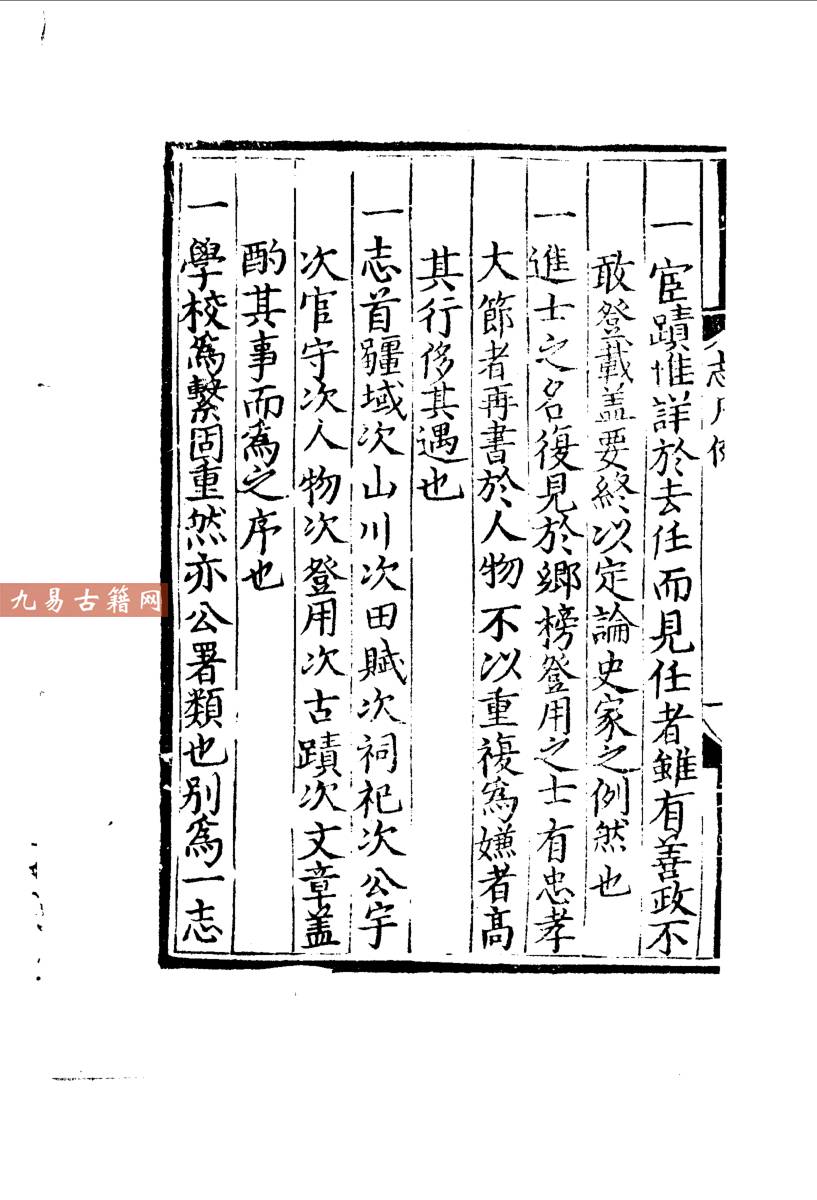 一宦蹟惟詳於去任而見任者雖有善政不
敢登載盖要終以定論史家之例然也
一進士之名復見於鄉榜登用之士有忠孝
大節者再書於人物不以重複為嫌者高
其行侈其遇也
一志首疆域次山川次田賦次祠祀次公宇
次官守次人物次登用次古蹟次文章盖
酌其事而為之序也
一學校為繫固重然亦公署類也別為一志
九易古籍网